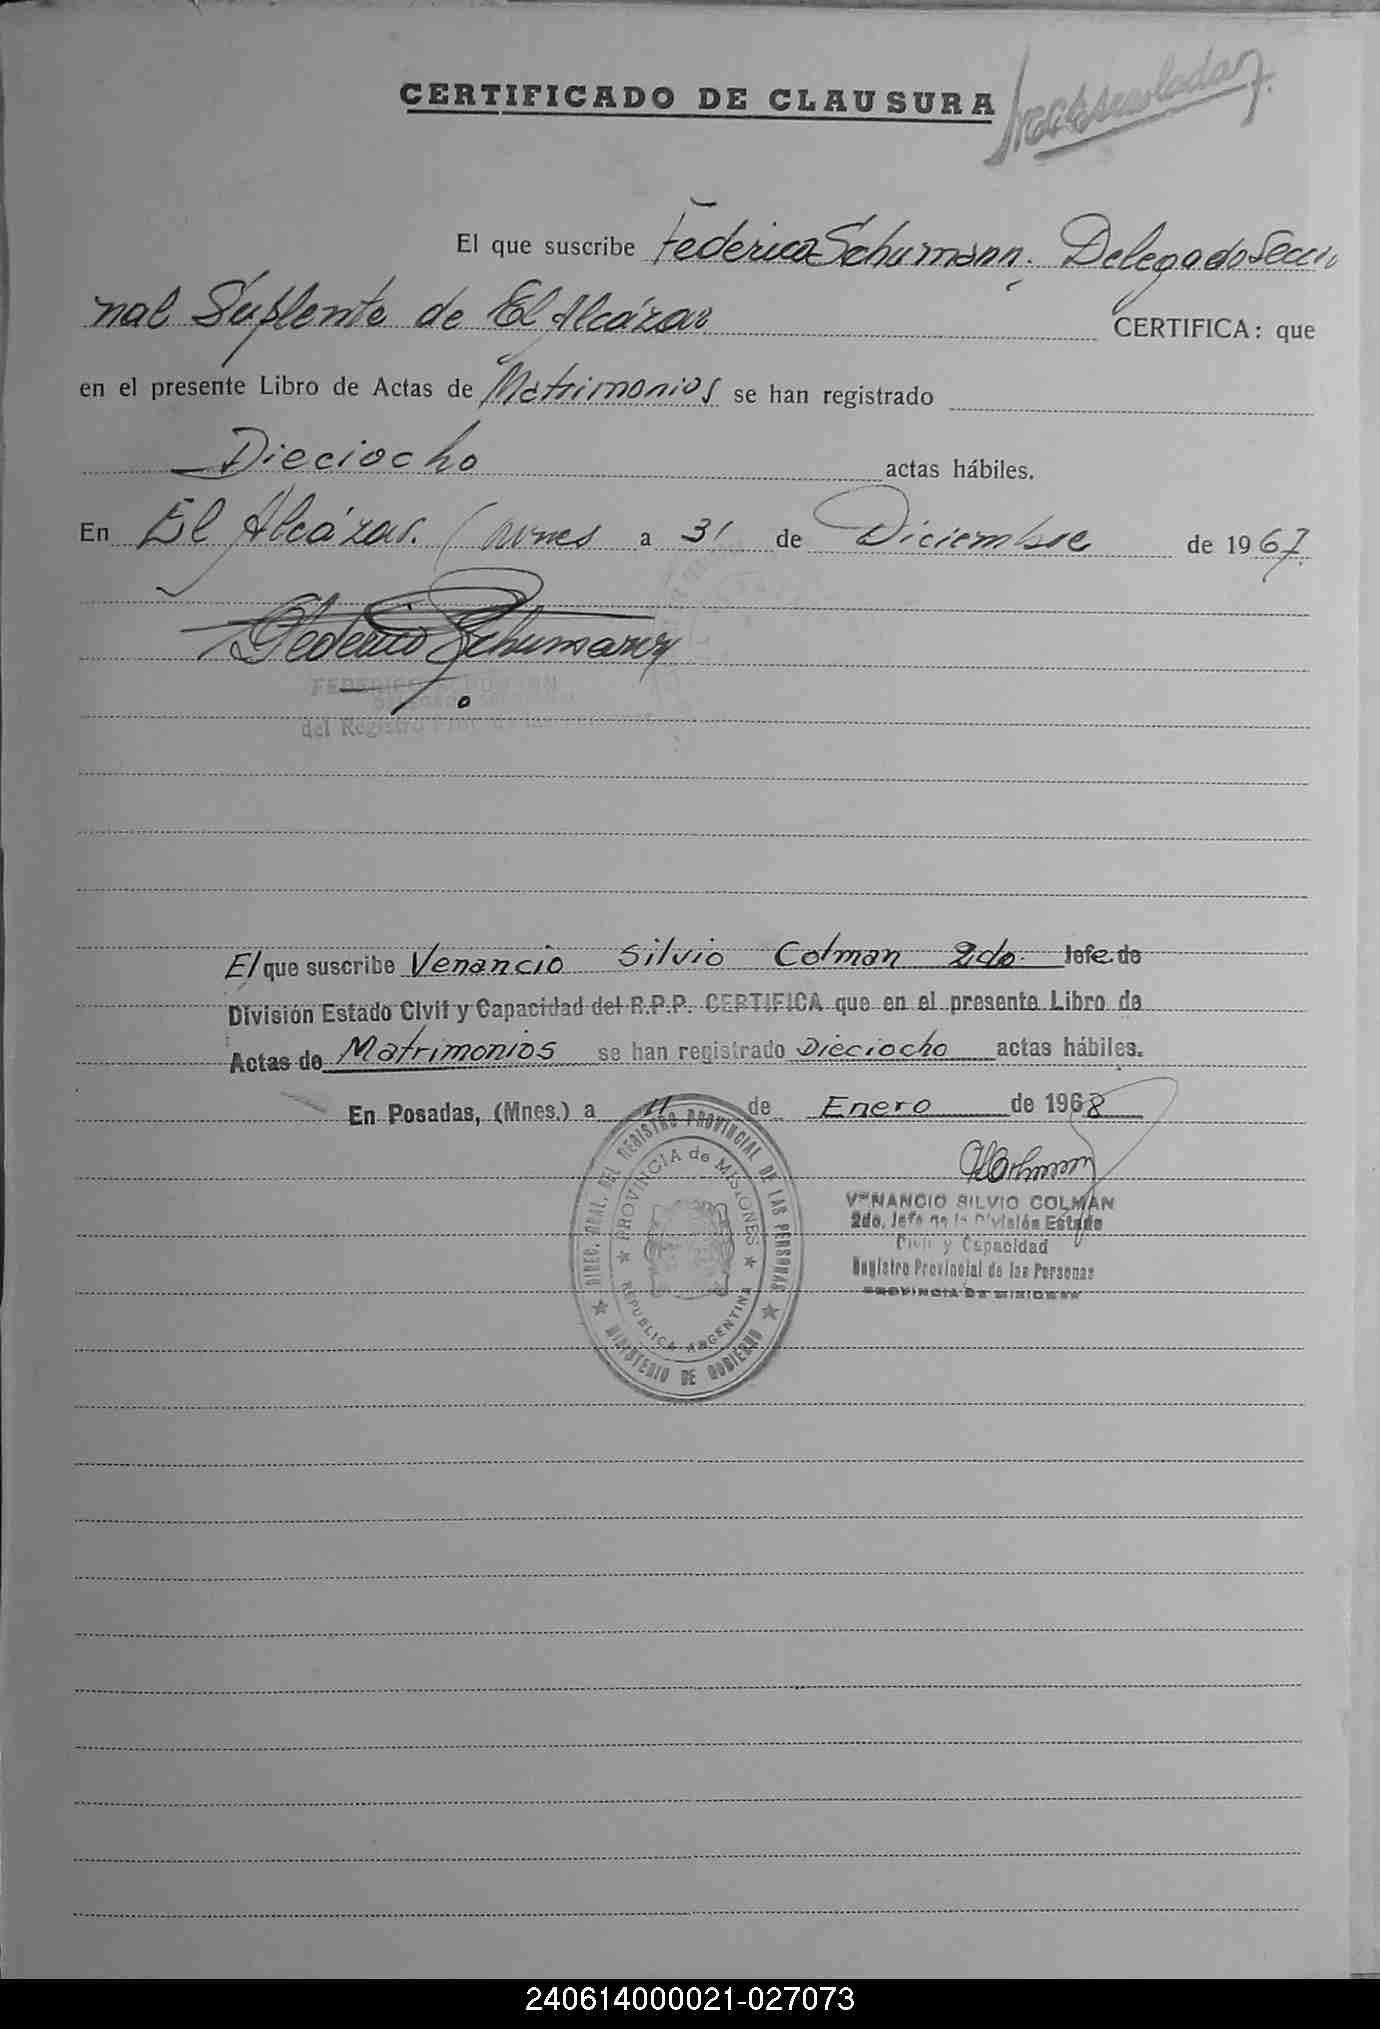 CERTIFICADO DE CLAUSURA
El que suscribe Federico Schumann. Delegado Secci
nal Suplente de El Alcázar CERTIFICA: que
en el presente Libro de Actas de Matrimonios se han registrado
Dieciocho actas hábiles.
En El Alcázar. (Mnes a 31 de Diciembre de 1967.
Federico Schumann
FEDERICO SCHUMANN
del Registro Prov. de las
El que suscribe Venancio Silvio Colman 2do. Jefe de
División Estado Civil y Capacidad del R.P.P. CERTIFICA que en el presente Libro de
Actas de Matrimonios se han registrado Dieciocho actas hábiles.
En Posadas, (Mnes.) a 11 de Enero de 1968
DIREC. GRAL. DEL REGISTRO PROVINCIAL DE LAS PERSONAS
PROVINCIA de MISIONES
REPUBLICA ARGENTINA
MINISTERIO DE GOBIERNO
VENANCIO SILVIO COLMAN
2do. Jefe de la División Estado
Civil y Capacidad
Registro Provincial de las Personas
PROVINCIA DE MISIONES
240614000021-027073